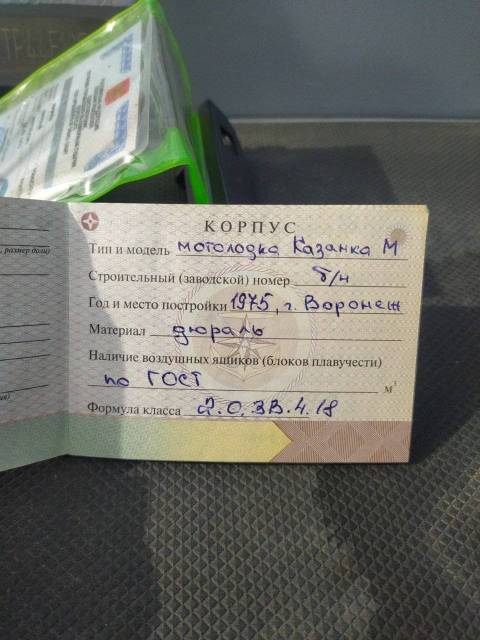 , размер доли)
КОРПУС
Тип и модель мотолодка Казанка М
Строительный (заводской) номер б/н
Год и место постройки 1975, г. Воронеж
Материал дюраль
Наличие воздушных ящиков (блоков плавучести)
по ГОСТ м³
Формула класса 2.0.3В.4.18